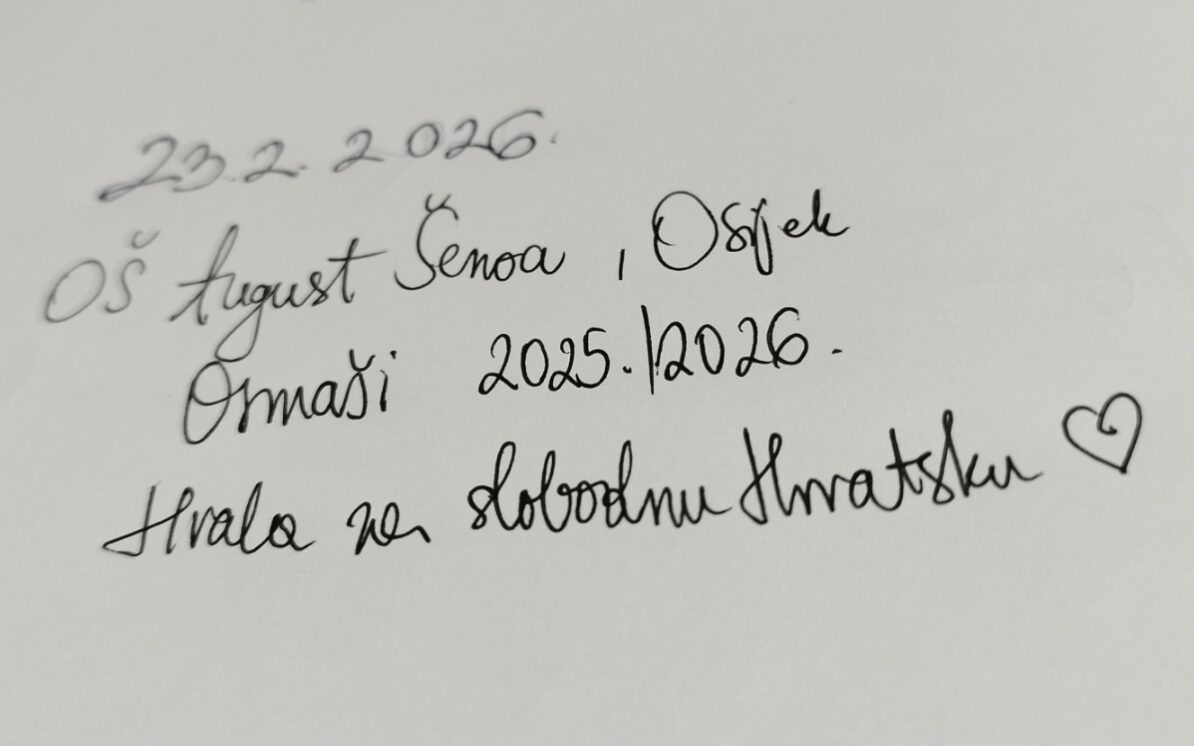 23.2.2026.
OŠ August Šenoa, Osijek
Osmaši 2025./2026.
Hvala za slobodnu Hrvatsku ♡